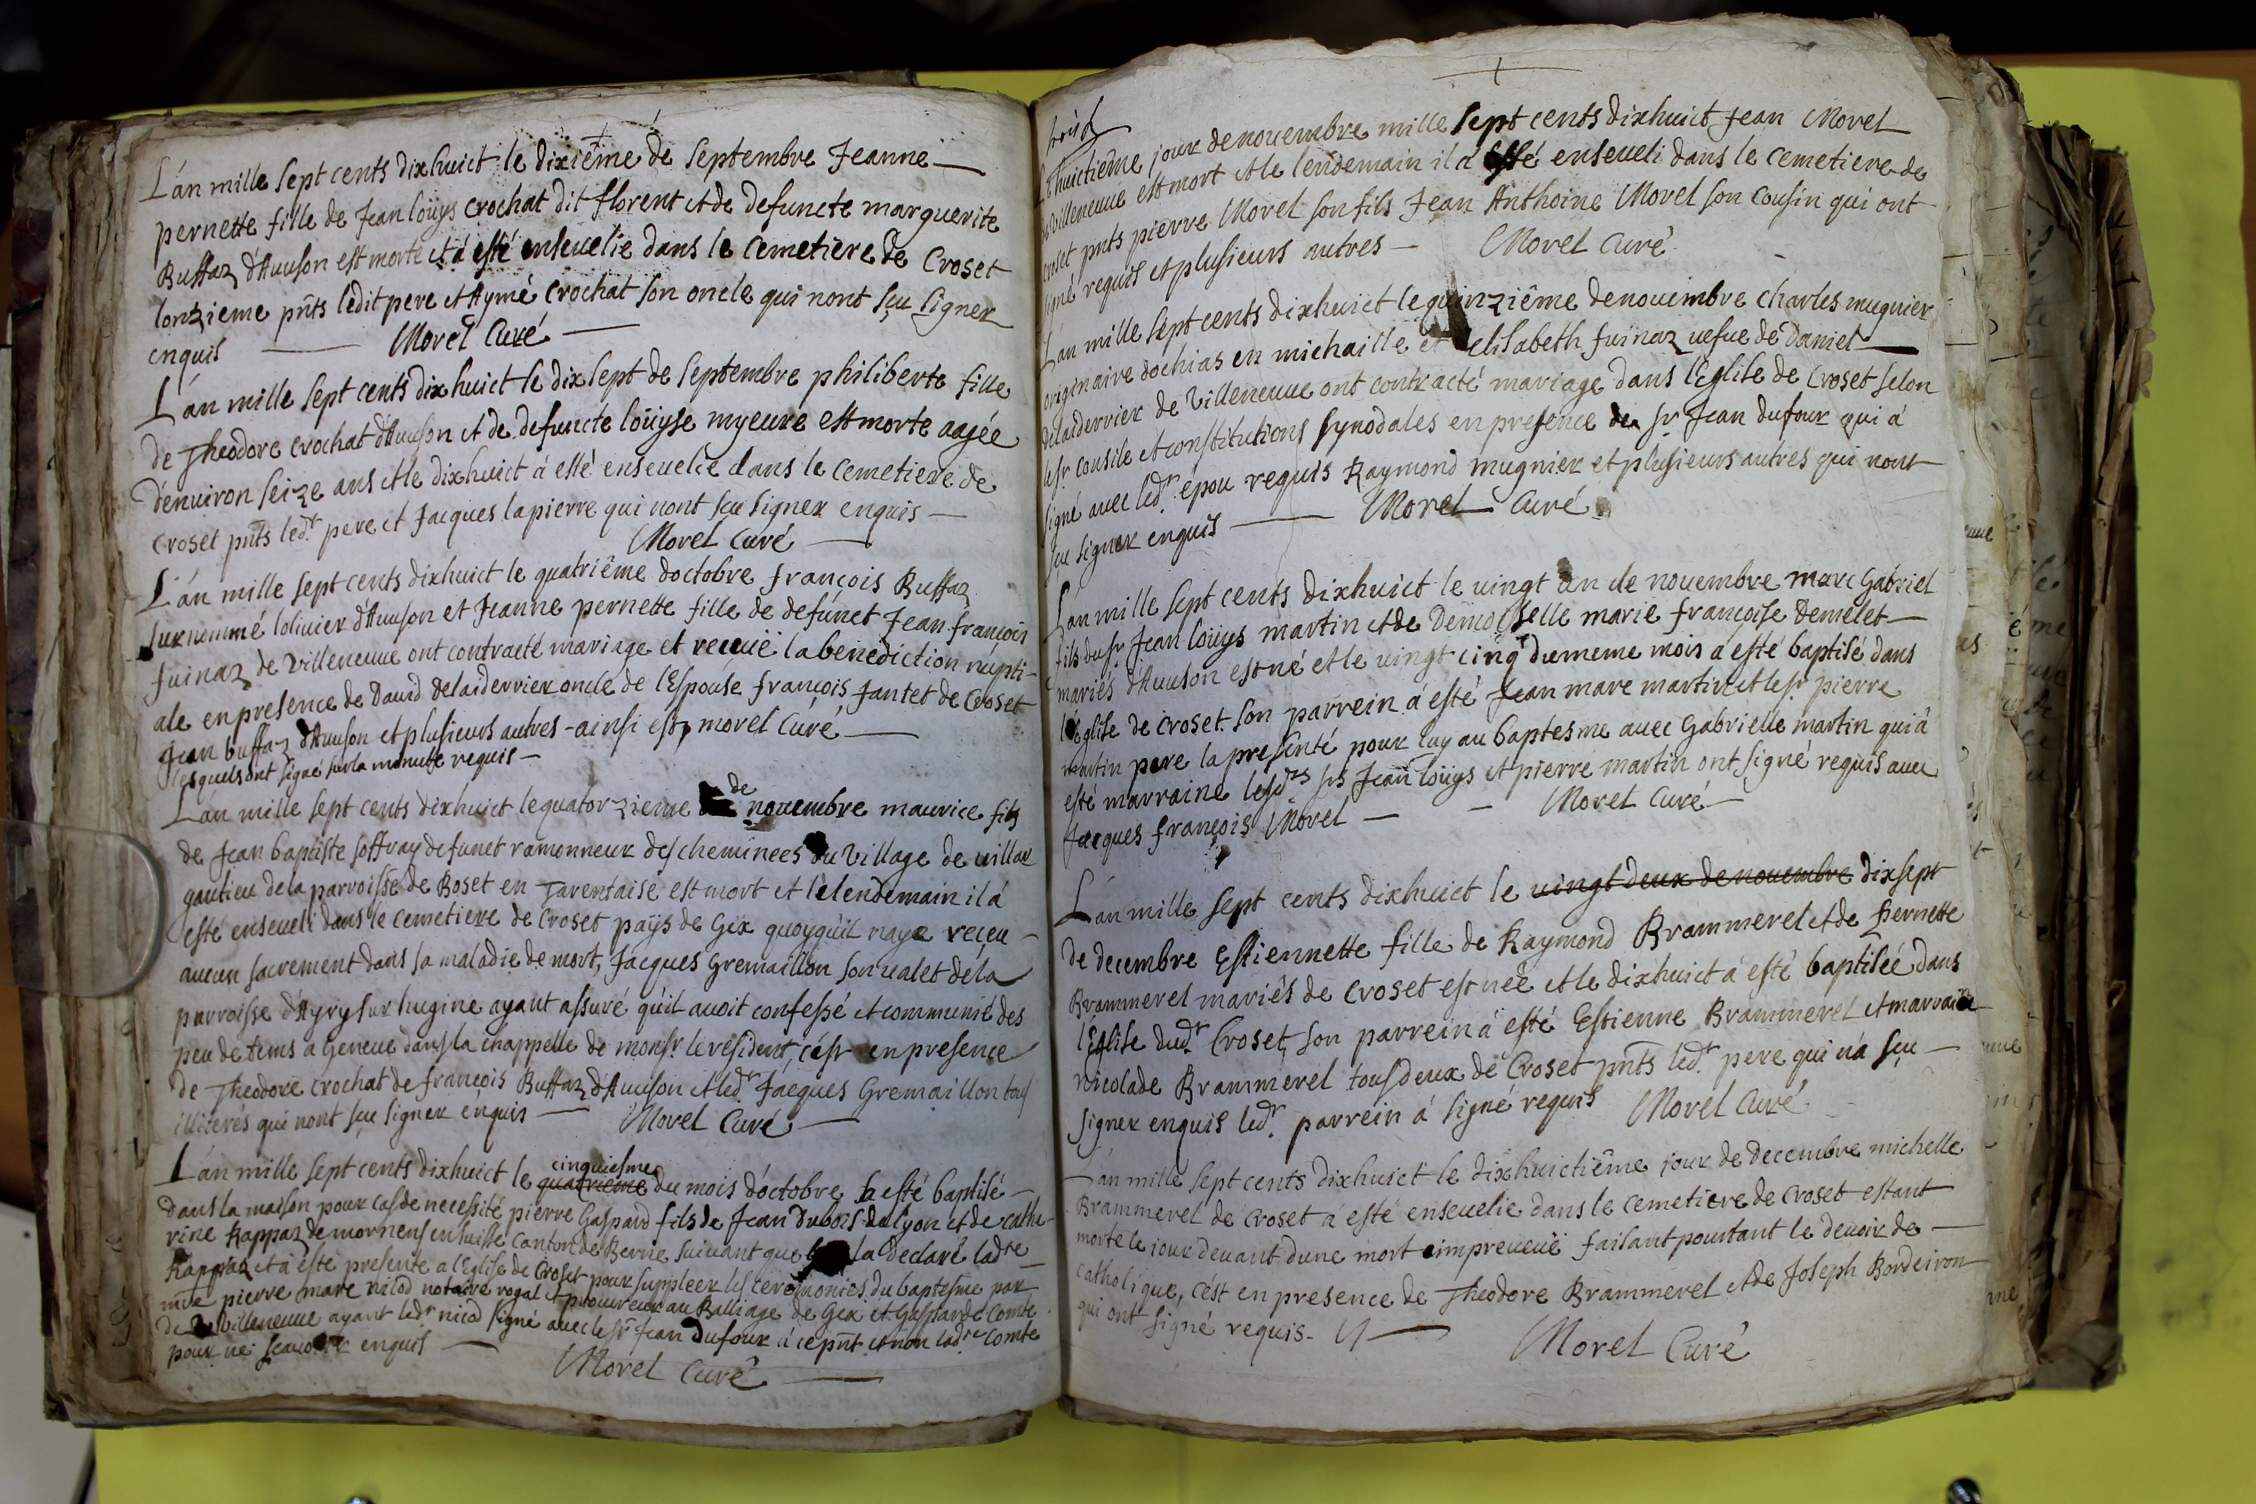 L'an mille sept cents dixhuict le dixiême de septembre Jeanne
pernette fille de Jean loüys crochat dit florent et de defuncte marguerite
Buffaz d'Auuson est morte et á esté enseuelie dans le cemetiere de Croset
lonzieme pnts ledit pere et Aymé crochat son oncle qui nont sçu signer
enquis Morel Curé
L'an mille sept cents dix huict le dix sept de septembre philiberte fille
de Theodore crochat d'Auuson et de defuncte loüyse myeure est morte aagée
d'enuiron seize ans et le dixhuict á esté enseuelie dans le cemetiere de
Croset pnts led.r pere et Jacques lapierre qui nont sçu signer enquis
Morel Curé
L'an mille sept cents dixhuict le quatriême doctobre françois Buffaz
surnommé lolivier d'Auuson et Jeanne pernette fille de defúnct Jean françois
fuinaz de Villeneuue ont contracté mariage et receuë la benediction nupti-
ale en presence de Dauid delaidervier oncle de l'Espouse françois Jantet de Croset
Jean buffaz d'Auuson et plusieurs autres - ainsi est morel Curé
lesquels ont signé sur la minutte requis
L'an mille sept cents dixhuict le quatorzieme de nouembre maurice fils
de Jean baptiste soffray defunct ramonneur des cheminees du Village de villar
gautieu de la parroisse de Boset en Tarentaise est mort et le lendemain il á
esté enseueli dans le cemetiere de Croset païs de Gex quoyqu'il naye receu
aucun sacrement dans sa maladie de mort, Jacques Gremaillon son valet de la
parroisse d'Ayry sur hugine ayant assuré qu'il auoit confessé et communié des
peu de tems a Geneue dans la chappelle de monsr le résident, c'est en presence
de Theodore crochat de françois Buffaz d'Auuson et led.r Jacques Gremaillon tous
illiterés qui nont sçu signer enquis Morel Curé
L'an mille sept cents dixhuict le cinquiesme quatrieme du mois d'octobre a esté baptisé
dans la maison pour cas de necessité pierre Gaspard fils de Jean dubois de lyon et de cathe-
rine Rappaz de mornens en suisse canton de Berne suiuant que la declaré lad.re
Rappaz et á esté presenté a l'Eglise de Croset pour suppleer les ceremonies du baptesme par
mre pierre marc nicod notaire royal et procureur au Balliage de Gex et Gasparde Comte
de Villeneuue ayant led.r nicod signé auec le sr Jean dufour á ce pnt et non lad.re Comte
pour ne sçauoir enquis
Morel Curé
huictiême jour de nouembre mille sept cents dixhuict Jean Morel
de Villeneuue est mort et le lendemain il á esté enseueli dans le cemetiere de
Croset pnts pierre Morel son fils Jean Anthoine Morel son cousin qui ont
signé requis et plusieurs autres Morel Curé
L'an mille sept cents dixhuict le quinziême de nouembre charles mugnier
originaire dochias en michaille et elisabeth fuinaz uefue de daniel
delaidervier de Villeneuue ont contracté mariage dans l'Eglise de Croset selon
le sr consile et constitutions synodales en presence du sr Jean dufour qui á
signé auec led.r epou requis Raymond mugnier et plusieurs autres qui nont
sçu signer enquis Morel Curé
L'an mille sept cents dixhuict le uingt un de nouembre marc Gabriel
fils du sr Jean loüys martin et de demoiselle marie françoise demelet
mariés d'Auuson est né et le uingt cinq du meme mois á esté baptisé dans
l'église de Croset. son parrein á esté Jean marc martin et le sr pierre
martin pere la presenté pour luy au baptesme auec Gabrielle martin qui á
esté marraine lesd.rs srs Jean loüys et pierre martin ont signé requis auec
Jacques françois Morel Morel Curé
L'an mille sept cents dixhuict le uingt deux de nouembre dixsept
de decembre Estiennette fille de Raymond Brammerel et de Pernette
Brammerel mariés de Croset est née et le dixhuict á esté baptiséé dans
l'Eglise dud.r Croset, son parrein á esté Estienne Brammerel et marraine
nicolade Brammerel tous deux de Croset pnts led.r pere qui n'á sçu
signer enquis led.r parrein á signé requis Morel Curé
L'an mille sept cents dixhuict le dixhuictiême jour de decembre michelle
Brammerel de Croset á esté enseuelie dans le cemetiere de Croset estant
morte le iour deuant dune mort impreueuë faisant pourtant le deuoir de
catholique, c'est en presence de Theodore Brammerel et de Joseph Bordeiron
qui ont signé requis.
Morel Curé